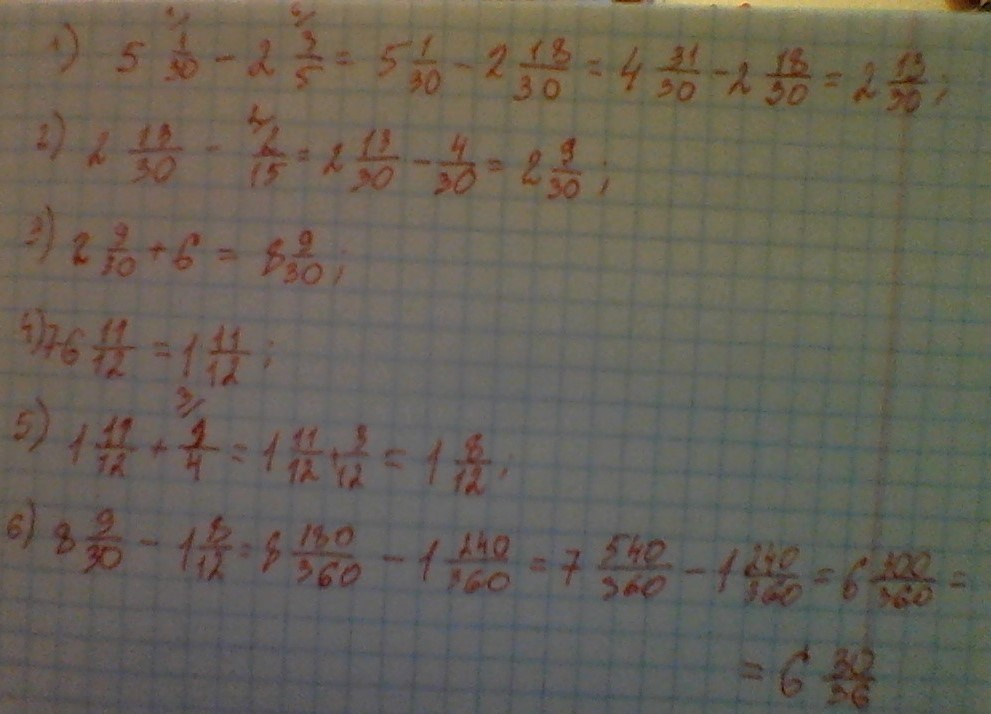 1) 5 1/30 - 2 3/5 = 5 1/30 - 2 18/30 = 4 31/30 - 2 18/30 = 2 13/30;
2) 2 13/30 - 2/15 = 2 13/30 - 4/30 = 2 9/30;
3) 2 9/30 + 6 = 8 9/30;
4) 7 6 11/12 = 1 11/12;
5) 1 11/12 + 1/4 = 1 11/12 + 3/12 = 1 8/12;
6) 8 9/30 - 1 8/12 = 8 180/360 - 1 240/360 = 7 540/360 - 1 240/360 = 6 300/360 =
= 6 30/36